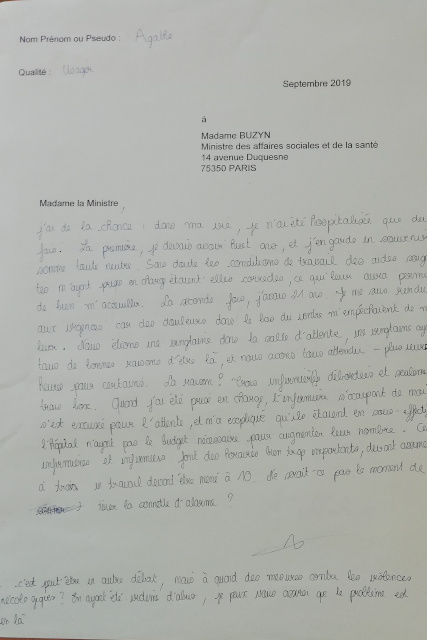 Nom Prénom ou Pseudo : Agathe
Qualité : Usager
Septembre 2019
à
Madame BUZYN
Ministre des affaires sociales et de la santé
14 avenue Duquesne
75350 PARIS
Madame la Ministre,
j'ai de la chance : dans ma vie, je n'ai été hospitalisée que deux
fois. La première, je devais avoir huit ans, et j'en garde un souvenir
somme toute neutre. Sans doute les conditions de travail des aides soig
tes m'ayant prise en charge étaient-elles correctes, ce qui leur aura permis
de bien m'accueillir. La seconde fois, j'avais 21 ans. Je me suis rendue
aux urgences car des douleurs dans le bas du ventre m'empêchaient de m
lever. Nous étions une vingtaine dans la salle d'attente, ces vingtaines
tous de bonnes raisons d'être là, et nous avons tous attendu - plusieurs
heures pour certains. La raison ? Trois infirmier(e)s débordé(e)s et seulement
trois box. Quand j'ai été prise en charge, l'infirmière s'occupant de moi
s'est excusée pour l'attente, et m'a expliqué qu'ils étaient en sous-effectif
l'hôpital n'ayant pas le budget nécessaire pour augmenter leur nombre. Ces
infirmières et infirmiers font des horaires bien trop importants, devant assumer
à trois un travail devant être mené à 10. Ne serait-ce pas le moment de
tirer la sonnette d'alarme ?
c'est peut-être un autre débat, mais à quand des mesures contre les violences
gynécologiques ? En ayant été victime d'abus, je peux vous assurer que le problème est
bien là